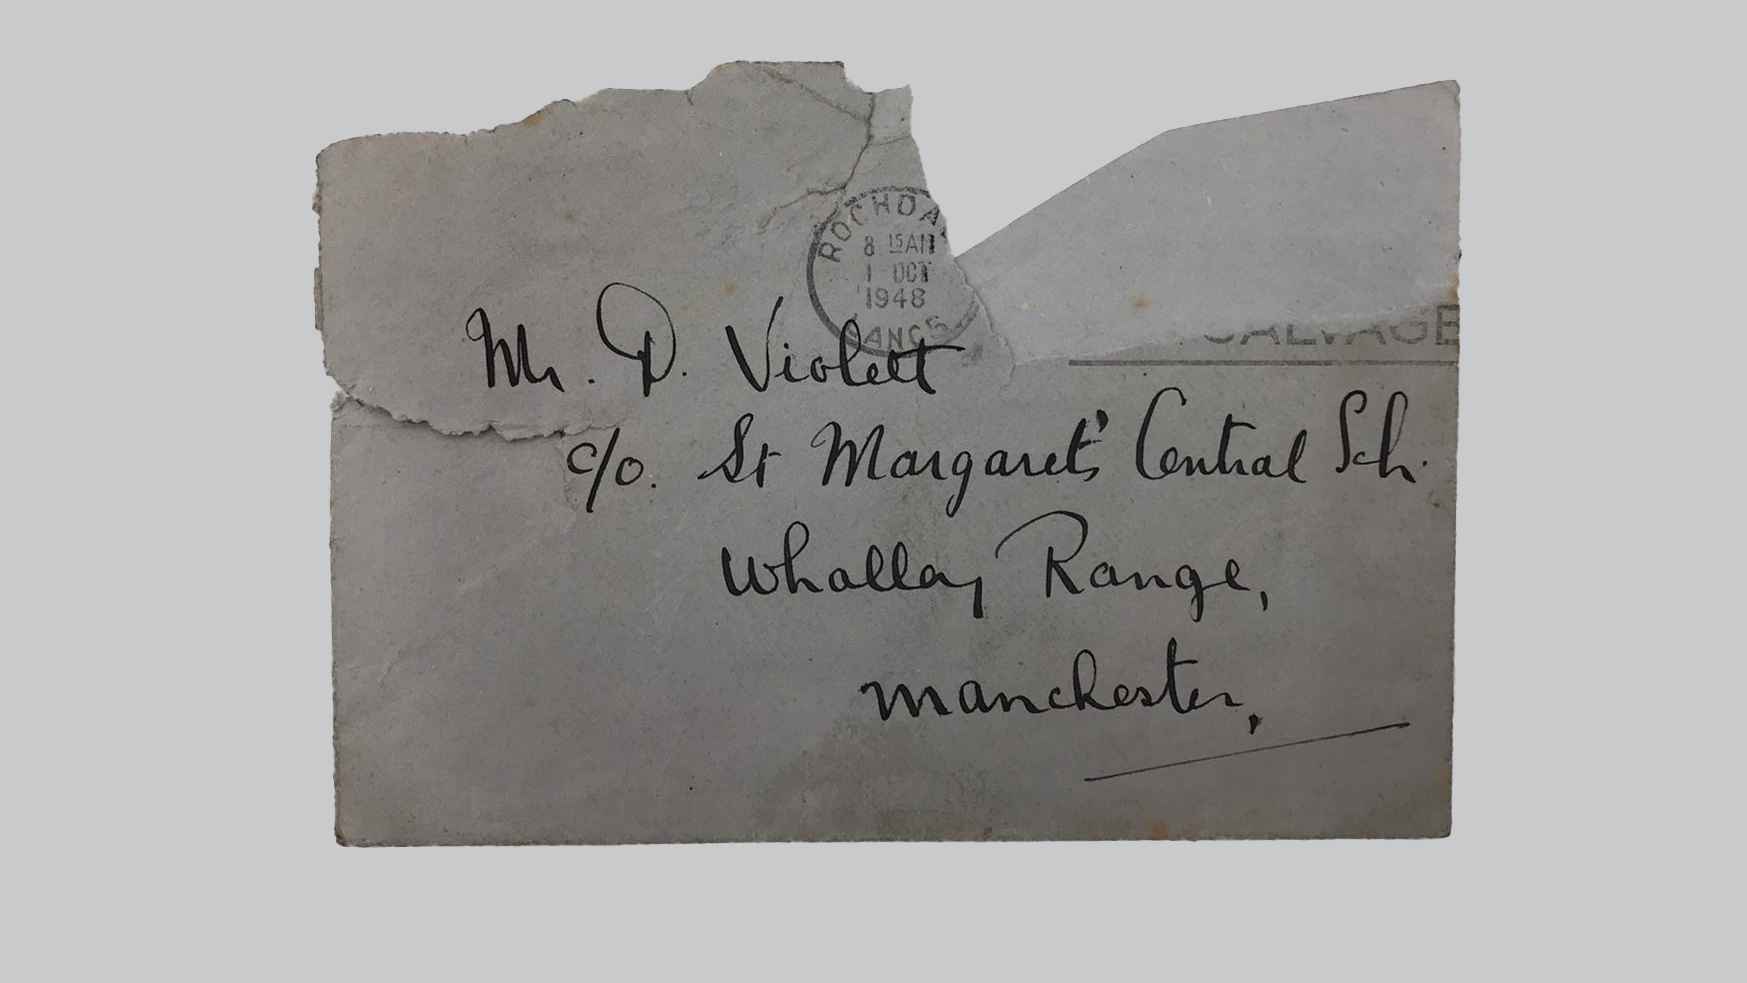 ROCHDA
8 15 AM
1 OCT
1948
LANCS
SALVAGE
Mr. D. Violett
c/o. St Margaret's Central Sch.
Whalley Range,
Manchester,